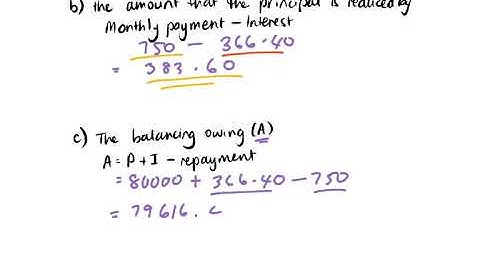 b) the amount that the principal is reduced by
Monthly payment - Interest
750 - 366.40
= 383.60
c) The balancing owing (A)
A = P + I - repayment
= 80000 + 366.40 - 750
= 79616.